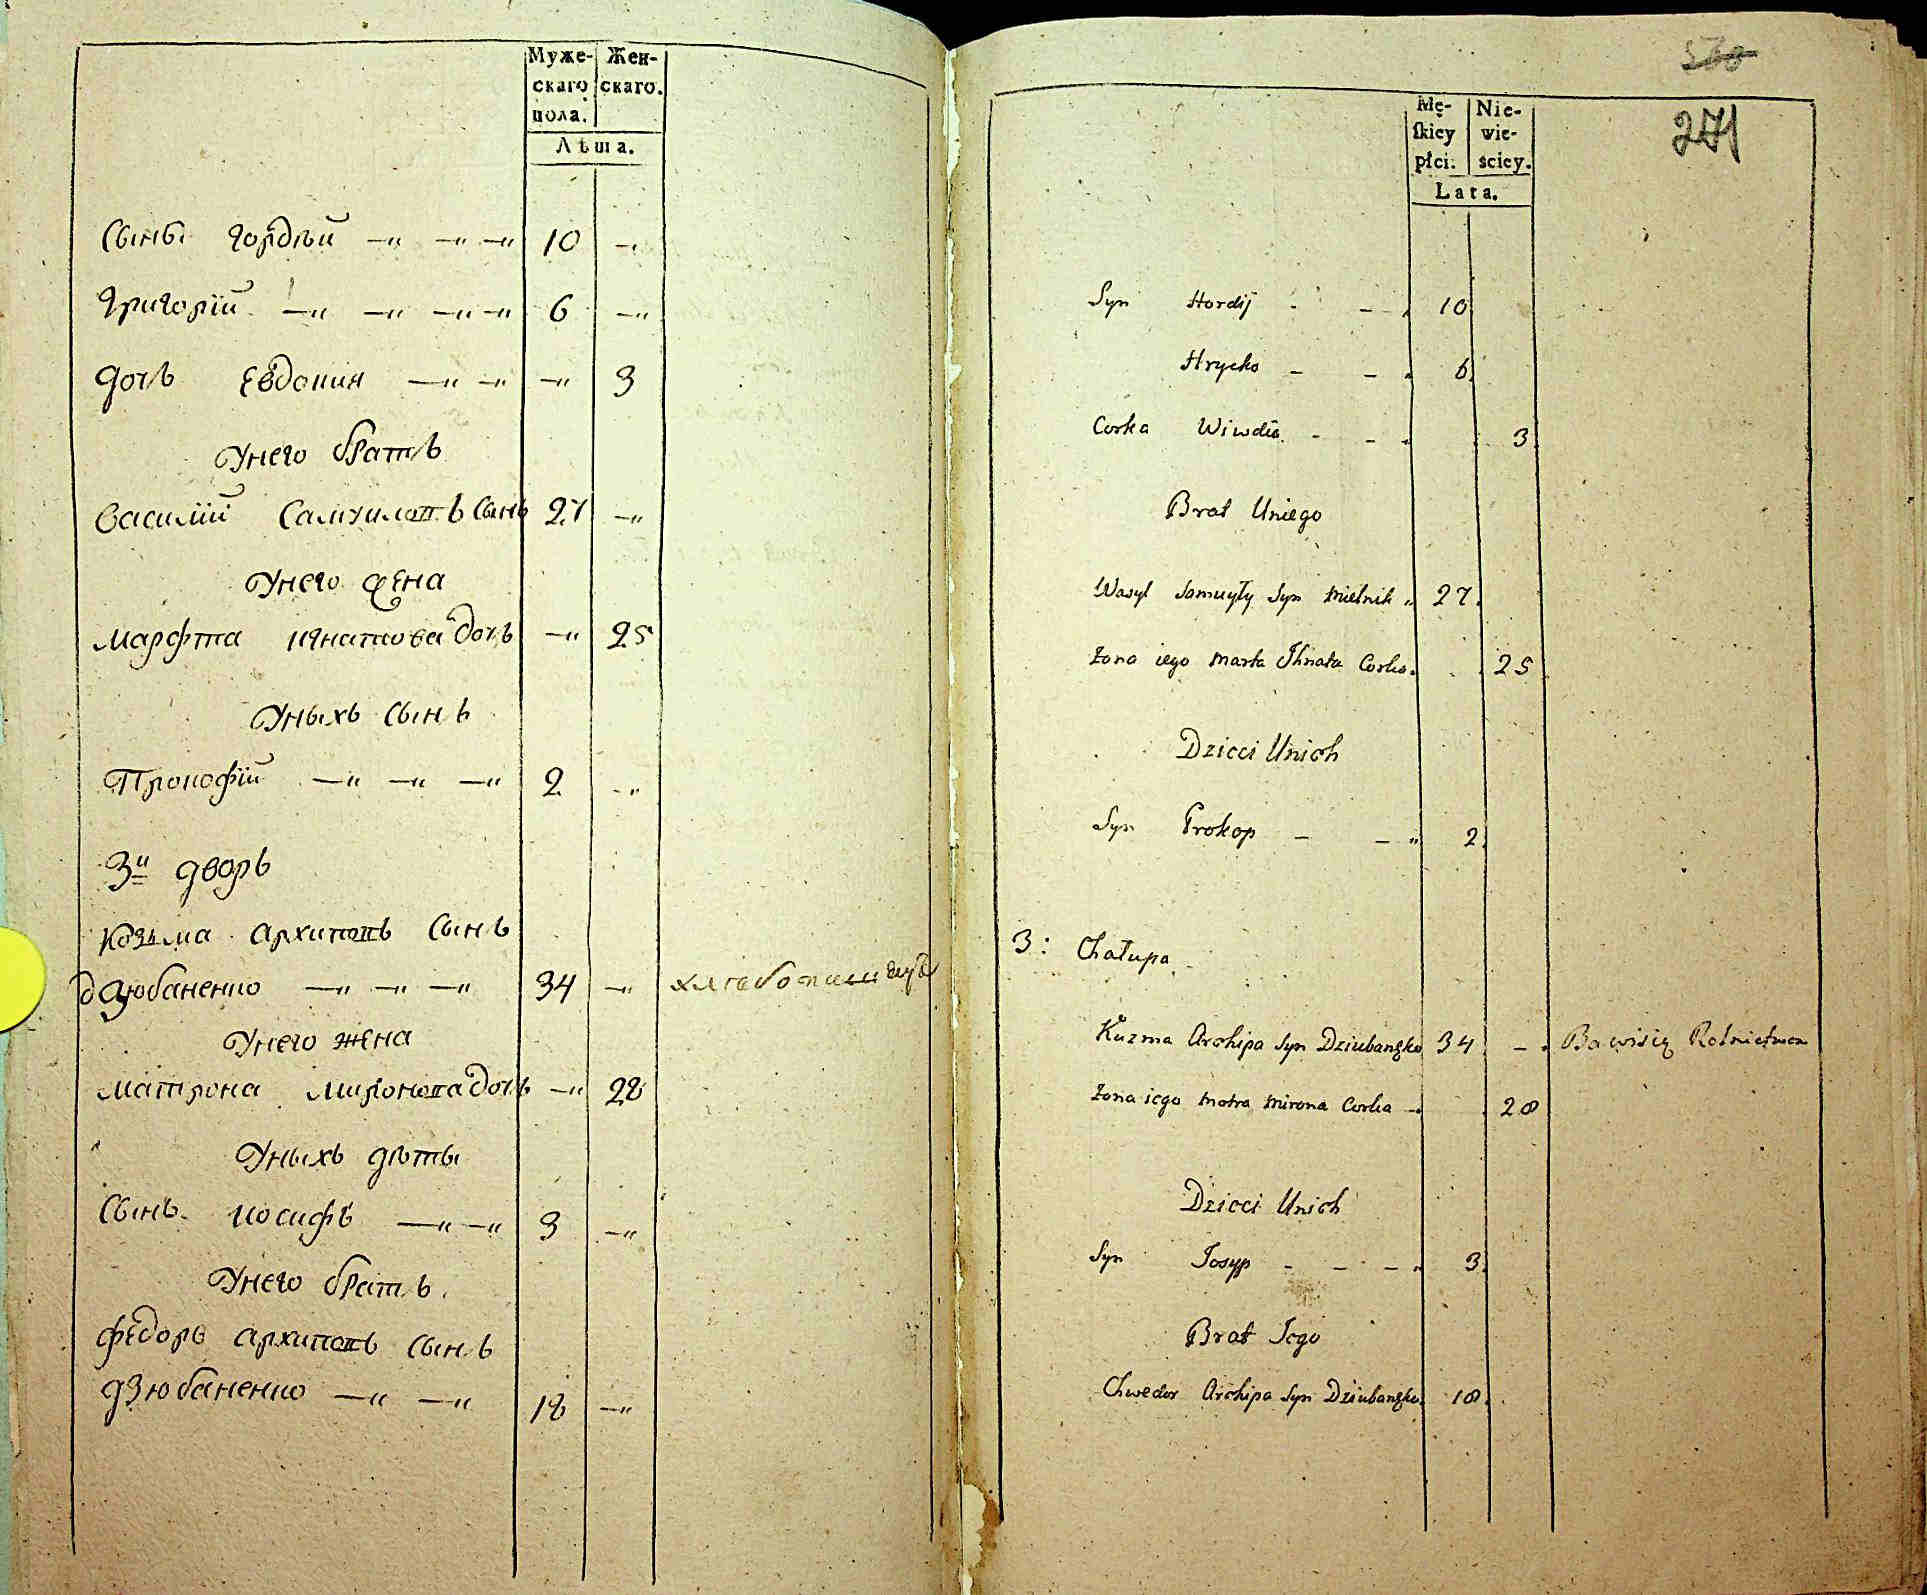 Муже-
скаго
пола.
Жен-
скаго.
Лѣта.
Сыны Гордѣй —„ —„ —„ 10 —„
Григорій —„ —„ —„ —„ 6 —„
Дочь Евдокия —„ —„ —„ 3
Унего братъ
Василий Самуиловъ Сынъ 27 —„
Унего жена
Марфта Игнатова Дочь —„ 25
Уныхъ Сынъ
Прокофій —„ —„ —„ 2 —„
3й дворъ
Козьма Архиповъ Сынъ
Дзюбаненко —„ —„ —„ 34 —„
Унего жена
Матрона Миронова Дочь —„ 28
Уныхъ дѣты
Сынъ Иосифъ —„ —„ 3 —„
Унего братъ
Федоръ Архиповъ Сынъ
Дзюбаненко —„ —„ 18 —„
271
Mę-
skiey
płci.
Nie-
wie-
ściey.
Lata.
Syn Hordij - - „ 10
Hrycko - - „ 6
Corka Wiwdia - - „ 3
Brat Uniego
Wasyl Samuyły Syn Mielnik „ 27
Żona iego Marta Ihnata Corka 25
Dzieci Unich
Syn Prokop - - „ 2
3: Chałupa
Kuzma Archipa Syn Dziubanęko 34 - „ Bawisię Rolnictwem
Żona iego Motra Mirona Corka - 28
Dzieci Unich
Syn Josyp - - - „ 3
Brat Jego
Chwedor Archipa Syn Dziubanęko 18